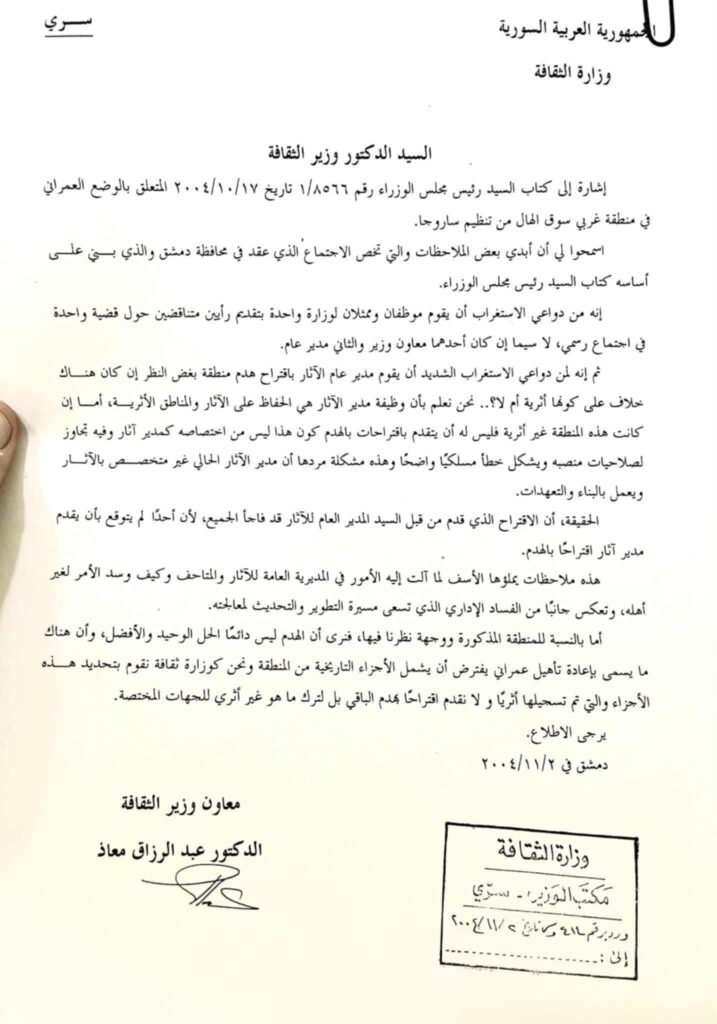 سـري
الجمهورية العربية السورية
وزارة الثقافة
السيد الدكتور وزير الثقافة
إشارة إلى كتاب السيد رئيس مجلس الوزراء رقم ١/٨٥٦٦ تاريخ ٢٠٠٤/١٠/١٧ المتعلق بالوضع العمراني
في منطقة غربي سوق الهال من تنظيم ساروجا.
اسمحوا لي أن أبدي بعض الملاحظات والتي تخص الاجتماع الذي عقد في محافظة دمشق والذي بني على
أساسه كتاب السيد رئيس مجلس الوزراء.
إنه من دواعي الاستغراب أن يقوم موظفان وممثلان لوزارة واحدة بتقديم رأيين متناقضين حول قضية واحدة
في اجتماع رسمي، لا سيما إن كان أحدهما معاون وزير والثاني مدير عام.
ثم إنه لمن دواعي الاستغراب الشديد أن يقوم مدير عام الآثار باقتراح هدم منطقة بغض النظر إن كان هناك
خلاف على كونها أثرية أم لا؟.. نحن نعلم بأن وظيفة مدير الآثار هي الحفاظ على الآثار والمناطق الأثرية، أما إن
كانت هذه المنطقة غير أثرية فليس له أن يتقدم باقتراحات بالهدم كون هذا ليس من اختصاصه كمدير آثار وفيه تجاوز
لصلاحيات منصبه ويشكل خطأ مسلكيًا واضحًا وهذه مشكلة مردها أن مدير الآثار الحالي غير متخصص بالآثار
ويعمل بالبناء والتعهدات.
الحقيقة، أن الاقتراح الذي قدم من قبل السيد المدير العام للآثار قد فاجأ الجميع، لأن أحدًا لم يتوقع بأن يقدم
مدير آثار اقتراحًا بالهدم.
هذه ملاحظات يملؤها الأسف لما آلت إليه الأمور في المديرية العامة للآثار والمتاحف وكيف وسد الأمر لغير
أهله، وتعكس جانبًا من الفساد الإداري الذي تسعى مسيرة التطوير والتحديث لمعالجته.
أما بالنسبة للمنطقة المذكورة ووجهة نظرنا فيها، فنرى أن الهدم ليس دائمًا الحل الوحيد والأفضل، وأن هناك
ما يسمى بإعادة تأهيل عمراني يفترض أن يشمل الأجزاء التاريخية من المنطقة ونحن كوزارة ثقافة نقوم بتحديد هذه
الأجزاء والتي تم تسجيلها أثريًا و لا نقدم اقتراحًا بهدم الباقي بل لترك ما هو غير أثري للجهات المختصة.
يرجى الاطلاع.
دمشق في ٢٠٠٤/١١/٢
معاون وزير الثقافة
الدكتور عبد الرزاق معاذ
وزارة الثقافة
مكتب الوزير - سرّي
ورد برقم تاريخ ٢٠٠٤/١١/٢
إلى :